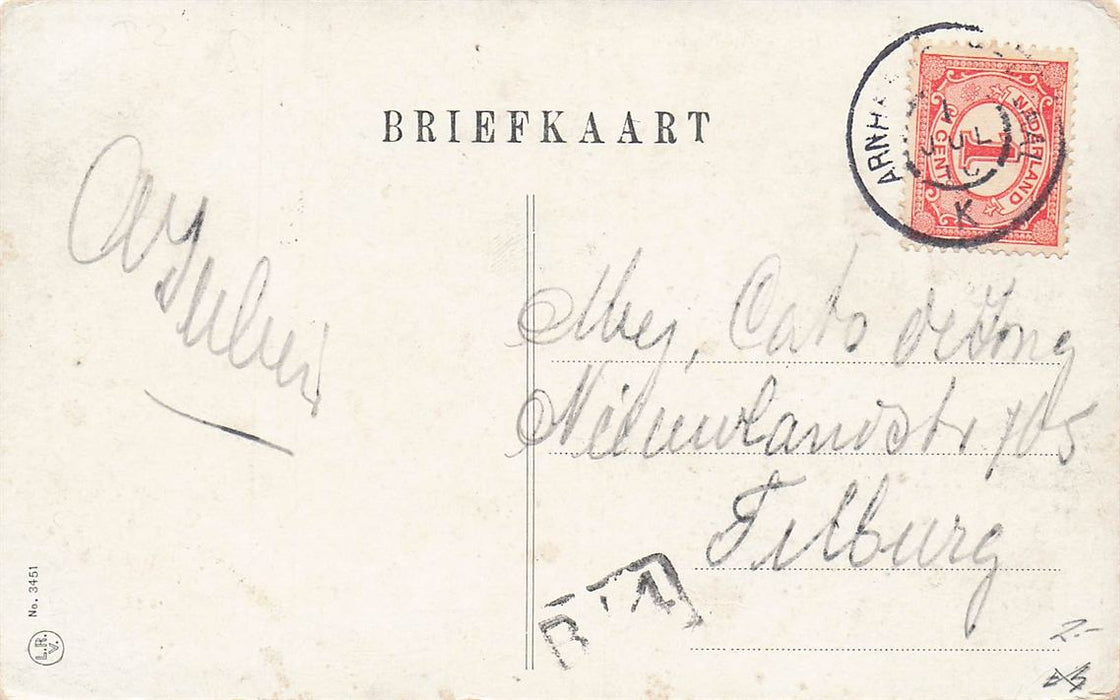 BRIEFKAART
ARNH
1
JUL
K
NEDERLAND
1
CENT
Mej. Cato de Jong
Nieuwlandstr 105
Tilburg
No. 3451
L.R.
V.
2.-